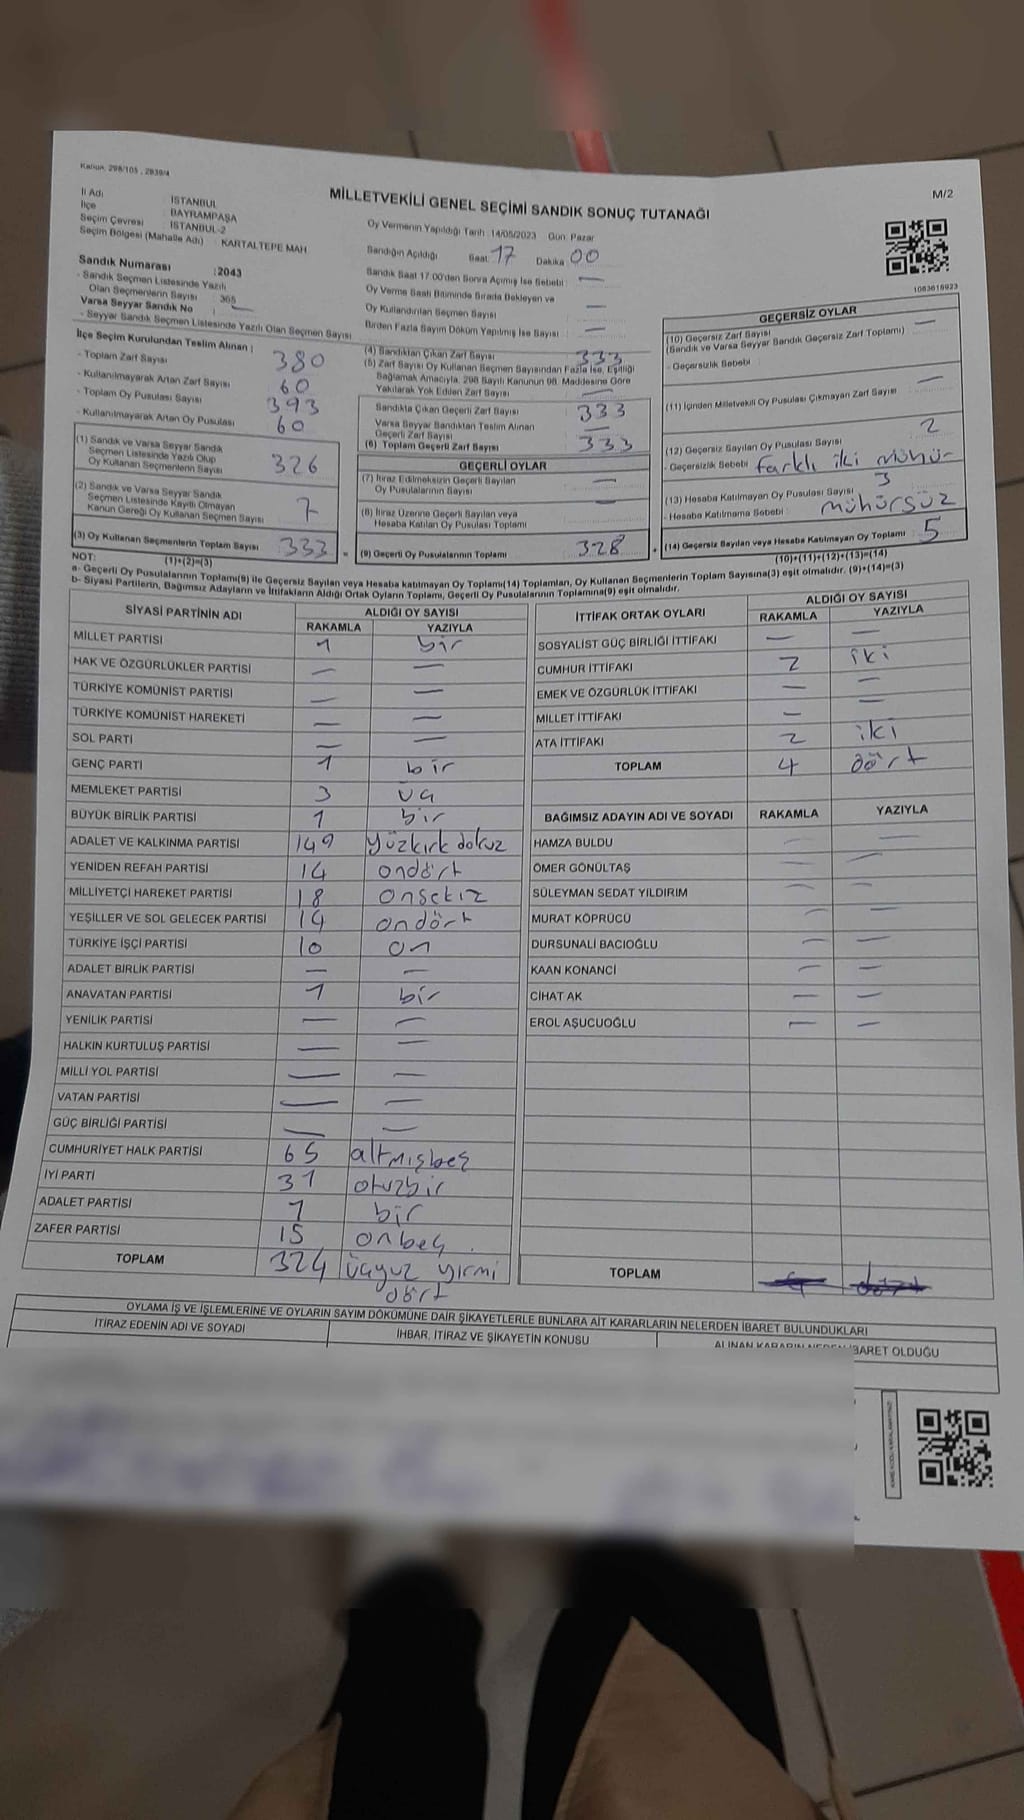 Kanun. 298/105 , 2839/4
MİLLETVEKİLİ GENEL SEÇİMİ SANDIK SONUÇ TUTANAĞI
M/2
İl Adı : İSTANBUL
İlçe : BAYRAMPAŞA
Seçim Çevresi : İSTANBUL-2
Seçim Bölgesi (Mahalle Adı) : KARTALTEPE MAH
Oy Vermenin Yapıldığı Tarih :14/05/2023 Gün: Pazar
Sandığın Açıldığı Saat: 17 Dakika: 00
Sandık Saat 17:00'den Sonra Açılmış İse Sebebi : —
Oy Verme Saati Bitiminde Sırada Bekleyen ve
Oy Kullandırılan Seçmen Sayısı —
Birden Fazla Sayım Döküm Yapılmış İse Sayısı : —
1083616923
Sandık Numarası :2043
- Sandık Seçmen Listesinde Yazılı
Olan Seçmenlerin Sayısı : 365
Varsa Seyyar Sandık No : —
- Seyyar Sandık Seçmen Listesinde Yazılı Olan Seçmen Sayısı
İlçe Seçim Kurulundan Teslim Alınan :
- Toplam Zarf Sayısı 380
- Kullanılmayarak Artan Zarf Sayısı 60
- Toplam Oy Pusulası Sayısı 393
- Kullanılmayarak Artan Oy Pusulası 60
(1) Sandık ve Varsa Seyyar Sandık
Seçmen Listesinde Yazılı Olup
Oy Kullanan Seçmenlerin Sayısı 326
(2) Sandık ve Varsa Seyyar Sandık
Seçmen Listesinde Kayıtlı Olmayan
Kanun Gereği Oy Kullanan Seçmen Sayısı 7
(3) Oy Kullanan Seçmenlerin Toplam Sayısı 333 =
(1)+(2)=(3)
(4) Sandıktan Çıkan Zarf Sayısı 333
(5) Zarf Sayısı Oy Kullanan Seçmen Sayısından Fazla İse, Eşitliği
Sağlamak Amacıyla, 298 Sayılı Kanunun 98. Maddesine Göre
Yakılarak Yok Edilen Zarf Sayısı —
Sandıkta Çıkan Geçerli Zarf Sayısı 333
Varsa Seyyar Sandıktan Teslim Alınan
Geçerli Zarf Sayısı —
(6) Toplam Geçerli Zarf Sayısı 333
GEÇERLİ OYLAR
(7) İtiraz Edilmeksizin Geçerli Sayılan
Oy Pusulalarının Sayısı —
(8) İtiraz Üzerine Geçerli Sayılan veya
Hesaba Katılan Oy Pusulası Toplamı —
(9) Geçerli Oy Pusulalarının Toplamı 328 +
GEÇERSİZ OYLAR
(10) Geçersiz Zarf Sayısı —
(Sandık ve Varsa Seyyar Sandık Geçersiz Zarf Toplamı)
- Geçersizlik Sebebi :
(11) İçinden Milletvekili Oy Pusulası Çıkmayan Zarf Sayısı —
(12) Geçersiz Sayılan Oy Pusulası Sayısı 2
- Geçersizlik Sebebi farklı iki mühü-
(13) Hesaba Katılmayan Oy Pusulası Sayısı 3
- Hesaba Katılmama Sebebi : mühürsüz
(14) Geçersiz Sayılan veya Hesaba Katılmayan Oy Toplamı 5
(10)+(11)+(12)+(13)=(14)
NOT:
a- Geçerli Oy Pusulalarının Toplamı(9) ile Geçersiz Sayılan veya Hesaba katılmayan Oy Toplamı(14) Toplamları, Oy Kullanan Seçmenlerin Toplam Sayısına(3) eşit olmalıdır. (9)+(14)=(3)
b- Siyasi Partilerin, Bağımsız Adayların ve İttifakların Aldığı Ortak Oyların Toplamı, Geçerli Oy Pusulalarının Toplamına(9) eşit olmalıdır.
SİYASİ PARTİNİN ADI ALDIĞI OY SAYISI
RAKAMLA YAZIYLA
MİLLET PARTİSİ 1 bir
HAK VE ÖZGÜRLÜKLER PARTİSİ — —
TÜRKİYE KOMÜNİST PARTİSİ — —
TÜRKİYE KOMÜNİST HAREKETİ — —
SOL PARTİ — —
GENÇ PARTİ 1 bir
MEMLEKET PARTİSİ 3 üç
BÜYÜK BİRLİK PARTİSİ 1 bir
ADALET VE KALKINMA PARTİSİ 149 yüzkırk dokuz
YENİDEN REFAH PARTİSİ 14 ondört
MİLLİYETÇİ HAREKET PARTİSİ 18 onsekiz
YEŞİLLER VE SOL GELECEK PARTİSİ 14 ondört
TÜRKİYE İŞÇİ PARTİSİ 10 on
ADALET BİRLİK PARTİSİ — —
ANAVATAN PARTİSİ 1 bir
YENİLİK PARTİSİ — —
HALKIN KURTULUŞ PARTİSİ — —
MİLLİ YOL PARTİSİ — —
VATAN PARTİSİ — —
GÜÇ BİRLİĞİ PARTİSİ — —
CUMHURİYET HALK PARTİSİ 65 altmışbeş
İYİ PARTİ 31 otuzbir
ADALET PARTİSİ 1 bir
ZAFER PARTİSİ 15 onbeş
TOPLAM 324 üçyüz yirmi
dört
İTTİFAK ORTAK OYLARI ALDIĞI OY SAYISI
RAKAMLA YAZIYLA
SOSYALİST GÜÇ BİRLİĞİ İTTİFAKI — —
CUMHUR İTTİFAKI 2 iki
EMEK VE ÖZGÜRLÜK İTTİFAKI — —
MİLLET İTTİFAKI — —
ATA İTTİFAKI 2 iki
TOPLAM 4 dört
BAĞIMSIZ ADAYIN ADI VE SOYADI RAKAMLA YAZIYLA
HAMZA BULDU — —
ÖMER GÖNÜLTAŞ — —
SÜLEYMAN SEDAT YILDIRIM — —
MURAT KÖPRÜCÜ — —
DURSUNALİ BACIOĞLU — —
KAAN KONANCİ — —
CİHAT AK — —
EROL AŞUCUOĞLU — —
TOPLAM 4 dört
OYLAMA İŞ VE İŞLEMLERİNE VE OYLARIN SAYIM DÖKÜMÜNE DAİR ŞİKAYETLERLE BUNLARA AİT KARARLARIN NELERDEN İBARET BULUNDUKLARI
İTİRAZ EDENİN ADI VE SOYADI İHBAR, İTİRAZ VE ŞİKAYETİN KONUSU ALINAN KARARIN NEDEN İBARET OLDUĞU